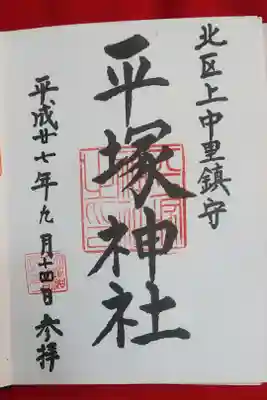 北区上中里鎮守
平塚神社
平成廿七年九月十四日参拝